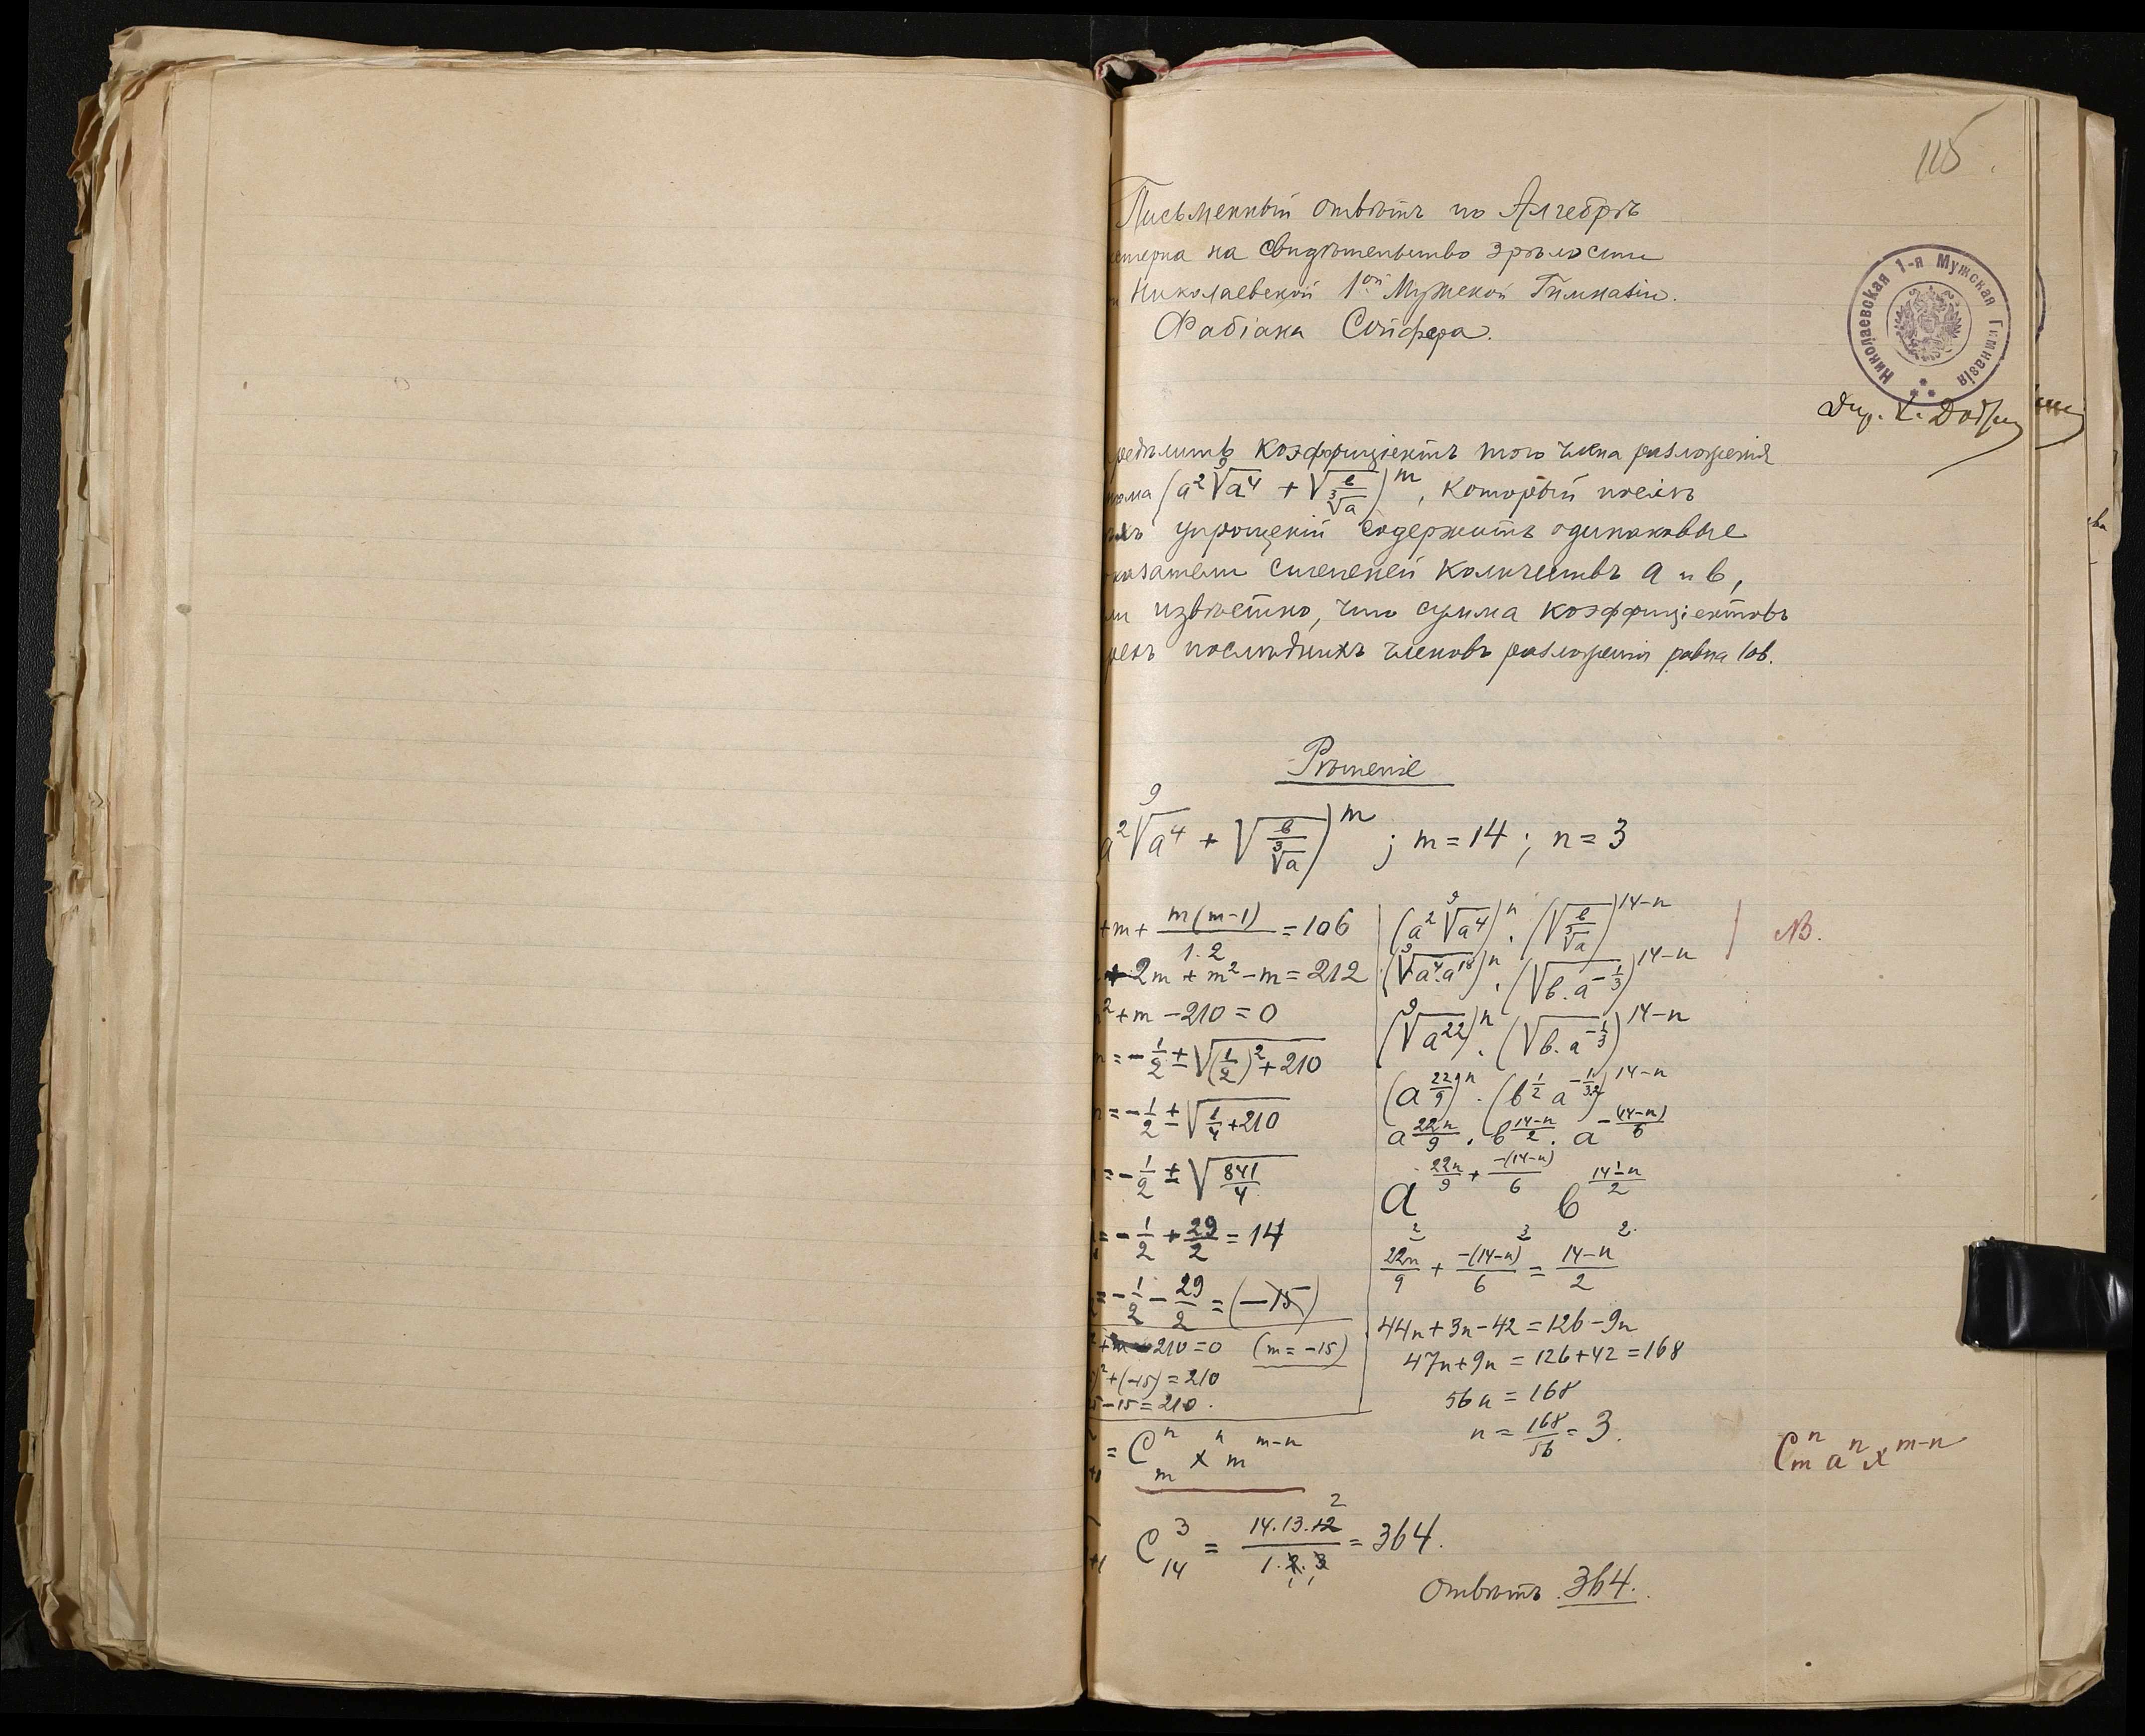 115.
Письменный отвѣтъ по Алгебрѣ
на свидѣтельство зрѣлости
Николаевской 1ой Мужской Гимназіи.
Фабіана Сойфера.
Николаевская 1-я Мужская Гимназія
Дир. Л.
коэффиціентъ того члена разложенія
(a² ⁹√a⁴ + √(b/³√a))^m, который послѣ
упрощеній содержитъ одинаковые
степеней количествъ a и b,
извѣстно, что сумма коэффиціентовъ
послѣднихъ членовъ разложенія равна 106.
Рѣшеніе
a² ⁹√a⁴ + √(b/³√a))^m ; m = 14 ; n = 3
+ m + m(m-1)/1.2 = 106
+ 2m + m² - m = 212
² + m - 210 = 0
= - 1/2 ± √((1/2)² + 210)
= - 1/2 ± √(1/4 + 210)
= - 1/2 ± √(841/4)
= - 1/2 + 29/2 = 14
= - 1/2 - 29/2 = (-15)
210 = 0 (m = -15)
² + (-15) = 210
- 15 = 210.
= C_m^n x^n m^(m-n)
C_14^3 = 14.13.12/1.2.3 = 364.
(a² ⁹√a⁴)^n . (√(b/³√a))^(14-n)
(⁹√a⁴.a¹⁸)^n . (√(b.a^(-1/3)))^(14-n)
(⁹√a²²)^n . (√(b.a^(-1/3)))^(14-n)
(a^(22/9))^n . (b^(1/2) a^(-1/3.2))^(14-n)
a^(22n/9) . b^((14-n)/2) . a^(-(14-n)/6)
a^(22n/9 + -(14-n)/6) b^((14-n)/2)
22n/9 + -(14-n)/6 = (14-n)/2
44n + 3n - 42 = 126 - 9n
47n + 9n = 126 + 42 = 168
56n = 168
n = 168/56 = 3.
NB.
C_m^n a^n x^(m-n)
Отвѣтъ 364.